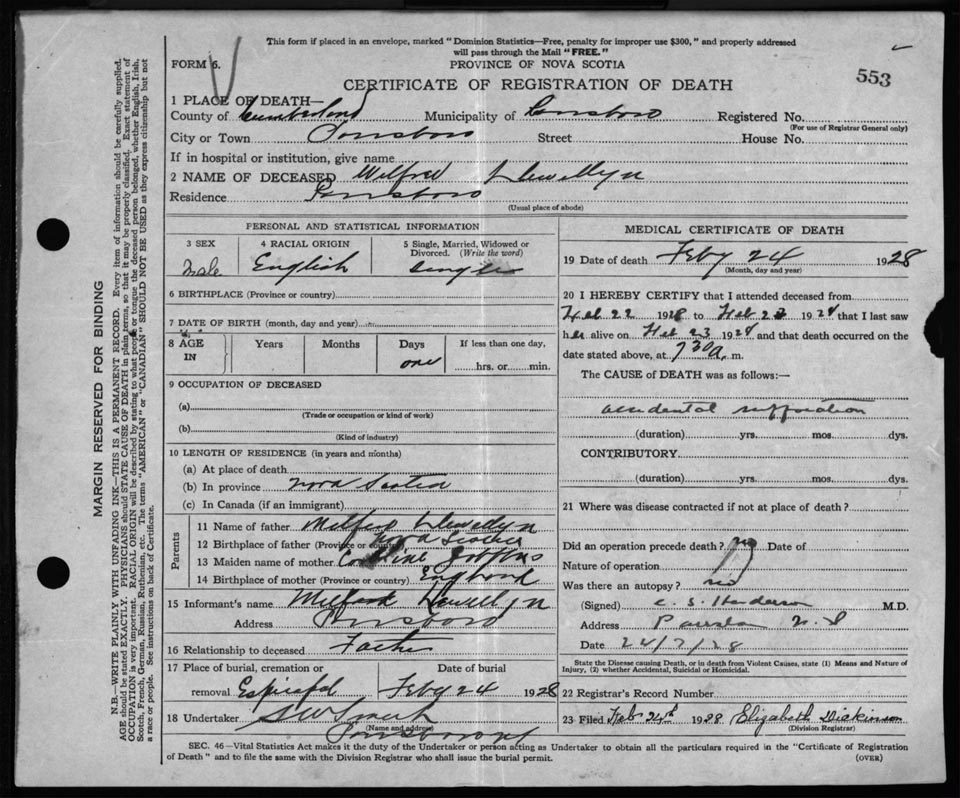 This form if placed in an envelope, marked "Dominion Statistics—Free, penalty for improper use $300," and properly addressed
will pass through the Mail "FREE."
FORM 6.
PROVINCE OF NOVA SCOTIA
553
CERTIFICATE OF REGISTRATION OF DEATH
1 PLACE OF DEATH—
County of Cumberland Municipality of Parrsboro Registered No.
(For use of Registrar General only)
City or Town Parrsboro Street House No.
If in hospital or institution, give name
2 NAME OF DECEASED Wilfred Llewellyn
Residence Parrsboro
(Usual place of abode)
PERSONAL AND STATISTICAL INFORMATION
3 SEX 4 RACIAL ORIGIN 5 Single, Married, Widowed or
Divorced. (Write the word)
Male English Single
6 BIRTHPLACE (Province or country)
7 DATE OF BIRTH (month, day and year)
8 AGE IN Years Months Days If less than one day,
one hrs. or min.
9 OCCUPATION OF DECEASED
(a)
(Trade or occupation or kind of work)
(b)
(Kind of industry)
10 LENGTH OF RESIDENCE (in years and months)
(a) At place of death
(b) In province Nova Scotia
(c) In Canada (if an immigrant)
Parents
11 Name of father Milford Llewellyn
12 Birthplace of father (Province or country) Nova Scotia
13 Maiden name of mother
14 Birthplace of mother (Province or country) England
15 Informant's name Milford Llewellyn
Address Parrsboro
16 Relationship to deceased Father
17 Place of burial, cremation or Date of burial
removal Feby 24 1928
18 Undertaker
(Name and address)
Parrsboro NS
MEDICAL CERTIFICATE OF DEATH
19 Date of death Feby 24 1928
(Month, day and year)
20 I HEREBY CERTIFY that I attended deceased from
Feb 22 1928 to Feb 23 1928 that I last saw
h alive on Feb 23 1928 and that death occurred on the
date stated above, at 7 30 a. m.
The CAUSE of DEATH was as follows:—
accidental suffocation
(duration) yrs. mos. dys.
CONTRIBUTORY
(duration) yrs. mos. dys.
21 Where was disease contracted if not at place of death?
Did an operation precede death? no Date of
Nature of operation
Was there an autopsy? no
(Signed) C. S. Henderson M.D.
Address N.S
Date 24/2/28
State the Disease causing Death, or in death from Violent Causes, state (1) Means and Nature of
Injury, (2) whether Accidental, Suicidal or Homicidal.
22 Registrar's Record Number
23 Filed Feb 24th 1928 Elizabeth Dickinson
(Division Registrar)
SEC. 46—Vital Statistics Act makes it the duty of the Undertaker or person acting as Undertaker to obtain all the particulars required in the "Certificate of Registration
of Death" and to file the same with the Division Registrar who shall issue the burial permit. (OVER)
MARGIN RESERVED FOR BINDING
N.B.—WRITE PLAINLY WITH UNFADING INK—THIS IS A PERMANENT RECORD. Every item of information should be carefully supplied.
AGE should be stated EXACTLY. PHYSICIANS should STATE CAUSE OF DEATH in plain terms, so that it may be properly classified. Exact statement of
OCCUPATION is very important. RACIAL ORIGIN will be described by stating to what people or tongue the deceased person belonged, whether English, Irish,
Scotch, French, German, Russian, Ruthenian, etc. The terms "AMERICAN" or "CANADIAN" SHOULD NOT BE USED as they express citizenship but not
a race or people. See instructions on back of Certificate.